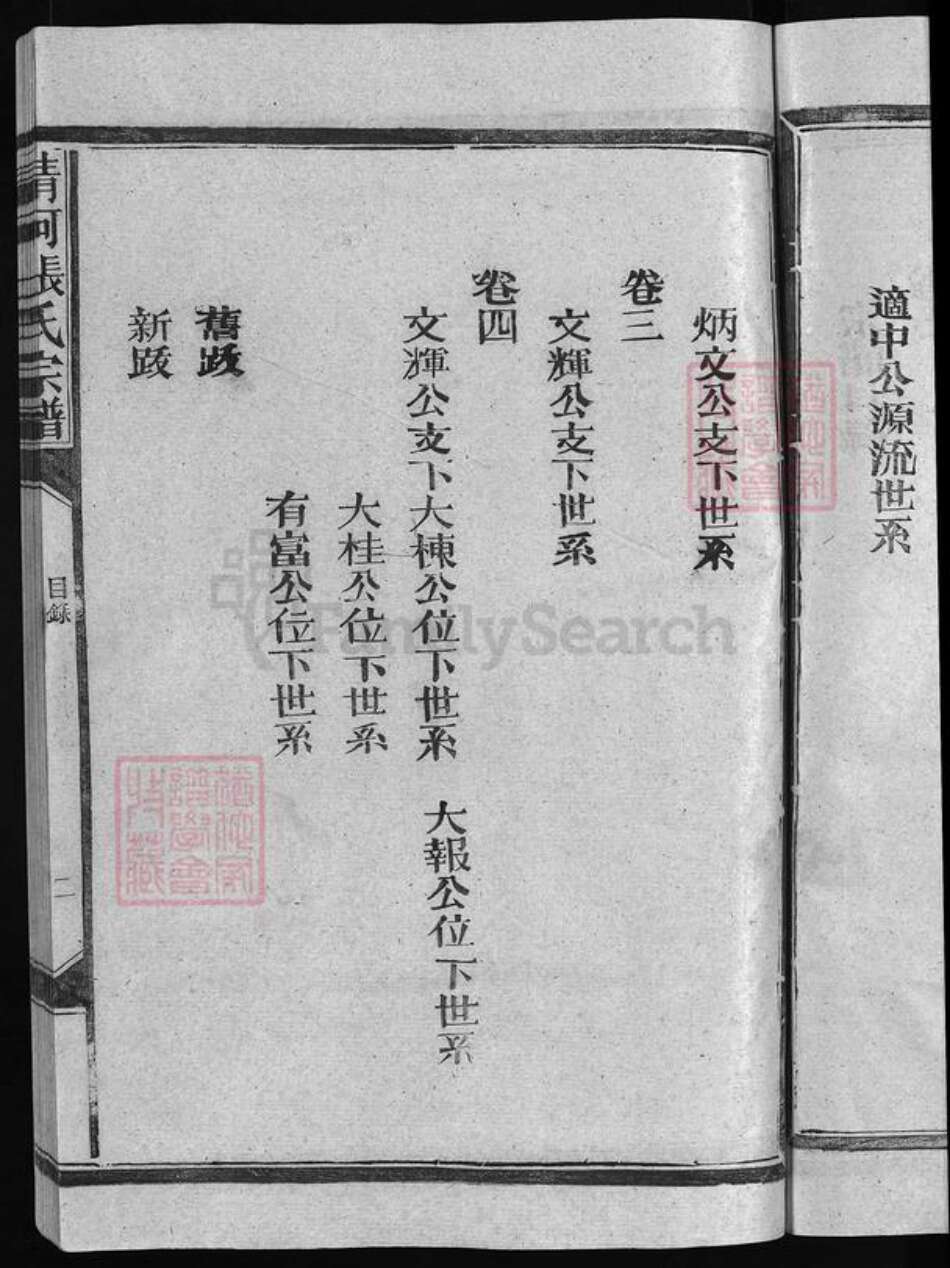 適中公源流世系
炳文公支下世系
卷三
文輝公支下世系
卷四
文輝公支下大棟公位下世系 大報公位下世系
大桂公位下世系
有富公位下世系
舊跋
新跋
清河張氏宗譜
目錄
二
FamilySearch